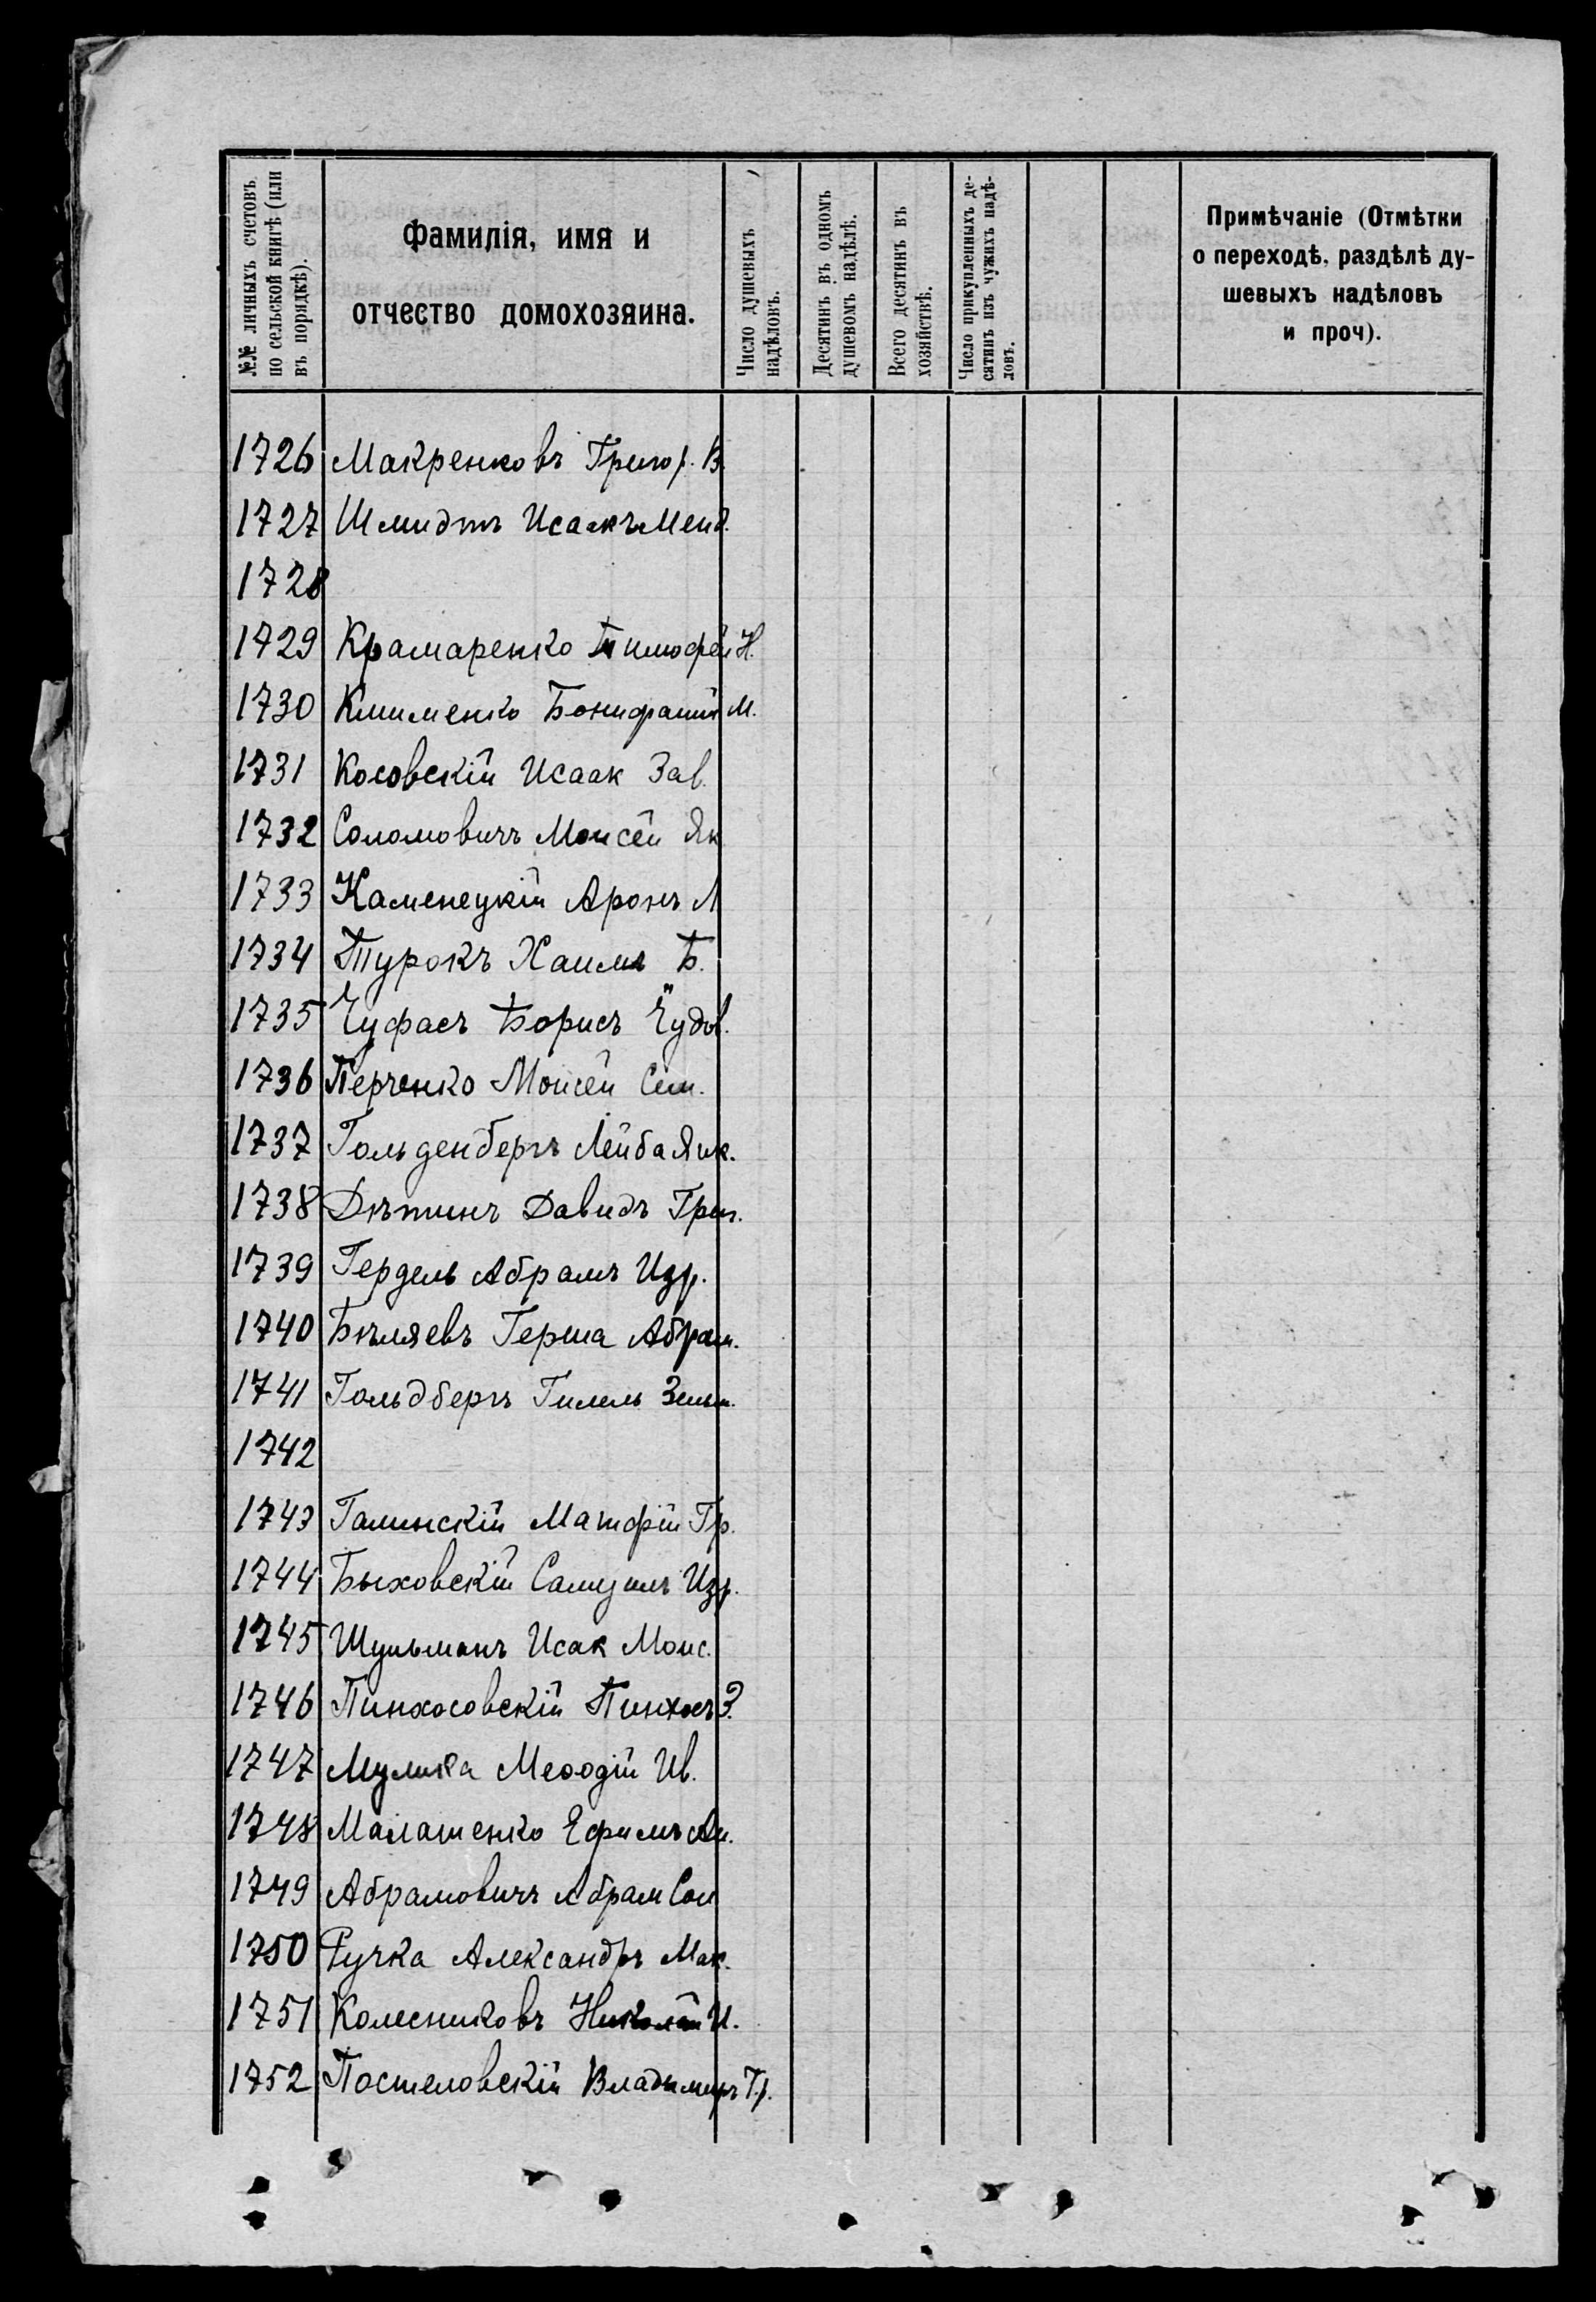 №№ личныхъ счетовъ
по сельской книгѣ (или
въ порядкѣ).
Фамилія, имя и
отчество домохозяина.
Число душевыхъ
надѣловъ.
Десятинъ въ одномъ
душевомъ надѣлѣ.
Всего десятинъ въ
хозяйствѣ.
Число прикупленныхъ де-
сятинъ изъ чужихъ надѣ-
ловъ.
Примѣчаніе (Отмѣтки
о переходѣ, раздѣлѣ ду-
шевыхъ надѣловъ
и проч).
1726 Макренковъ Григор. В.
1727 Шмидтъ Исаакъ Менд.
1728
1729 Крамаренко Тимофей Н.
1730 Клименко Бонифатій М.
1731 Косовскій Исаак Зав.
1732 Соломовичъ Моисей Як
1733 Каменецкій Аронъ Л
1734 Турокъ Хаимъ Б.
1735 Чуфасъ Борисъ
1736 Перченко Моисей Сем.
1737 Гольденбергъ Лейба Янк.
1738 Дѣтинъ Давидъ Григ.
1739 Гердель Абрамъ Изр.
1740 Бѣляевъ Герша Абрам.
1741 Гольдбергъ Гилель Зельм.
1742
1743 Галинскій Матфій Гр.
1744 Быховскій Самуилъ Изр.
1745 Шульманъ Исак Моис.
1746 Пинхосовскій Пинхосъ З.
1747 Мулика Меѳодій Ив.
1748 Малашенко Ефимъ Ан.
1749 Абрамовичъ Абрам Сол
1750 Ручка Александръ Мак.
1751 Колесниковъ Николай И.
1752 Постеловскій Владимиръ Гр.